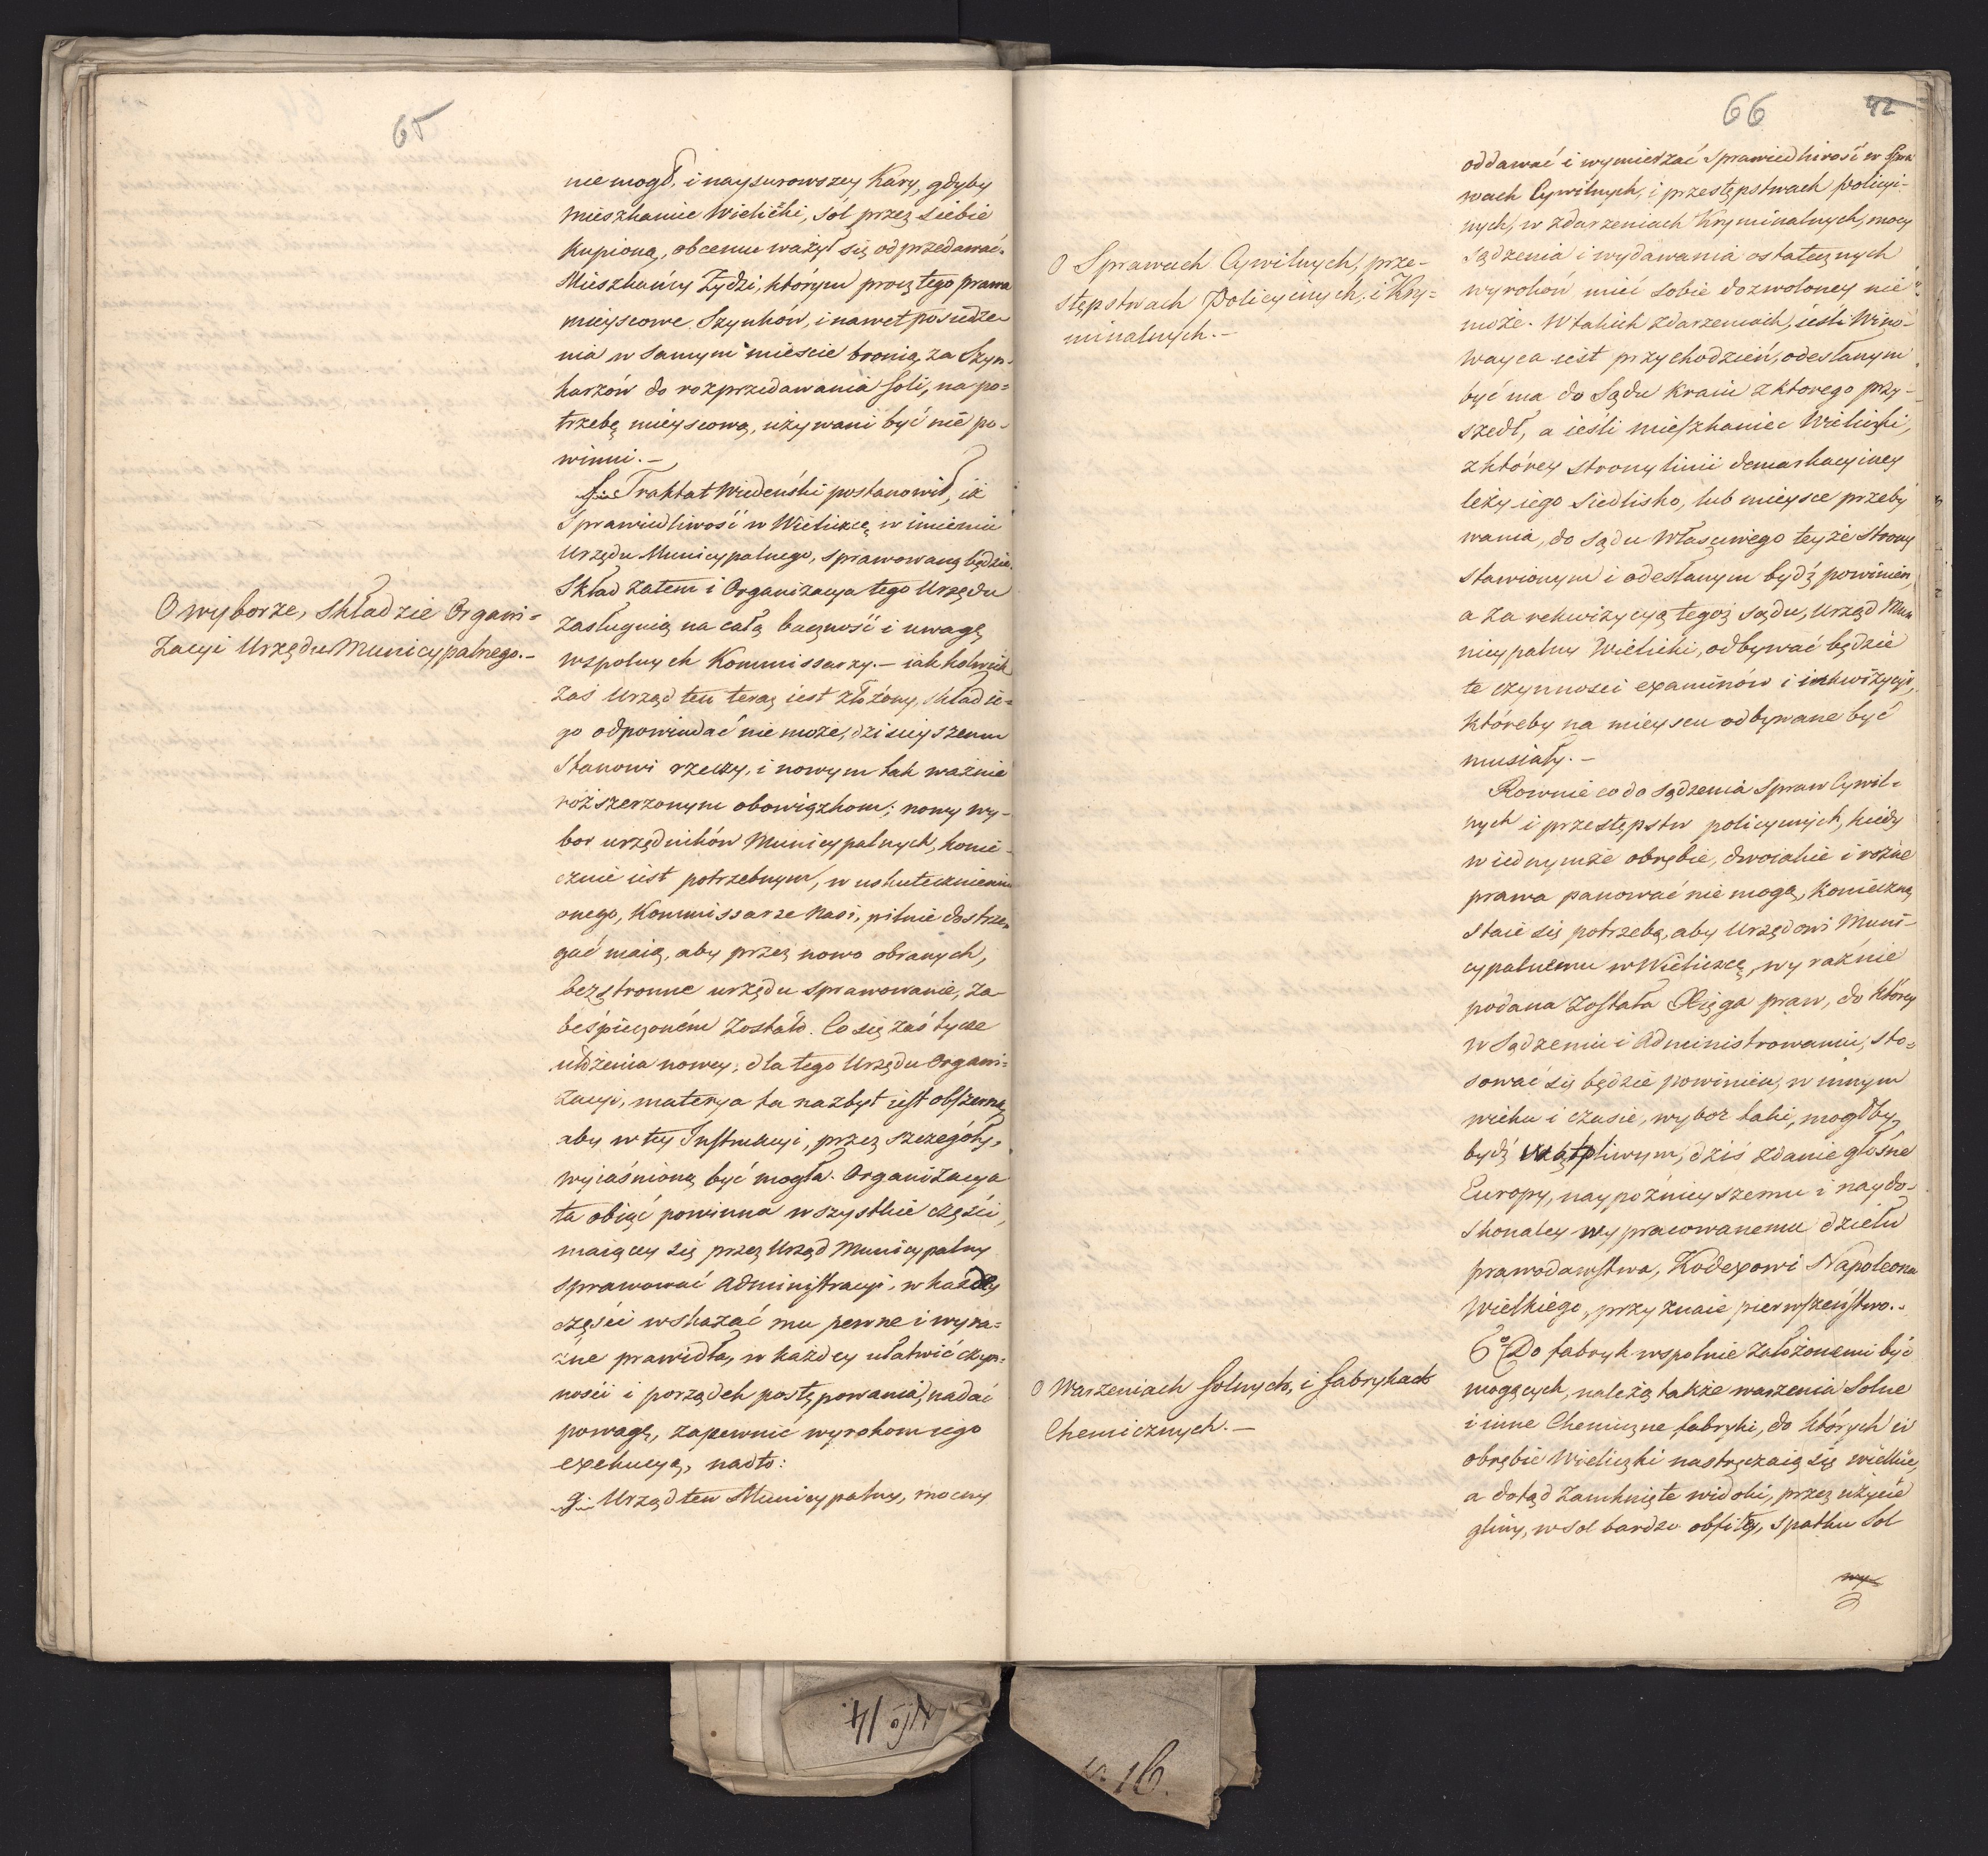 65
nie mogł, i naysurowszey Kary, gdyby
mieszkaniec Wielicki, sól przez siebie
Kupioną, obcemu ważył się odprzedawać.
Mieszkańcy Żydzi, którym procz tego prawa
mieyscowe Szynków, i nawet posiedze-
nia w samym mieście bronią, za Szyn-
karzów do rozprzedawania soli, na po=
trzebę mieyscową, używani być nie po-
winni.-
Traktat Wiedeński postanowił, iż
Sprawiedliwość w Wieliczcę w imieniu
Urzędu Municypalnego, sprawowaną będzie.
Skład zatem i Organizacya tego Urzędu
O wyborze, składzie Organi=
zacyi Urzędu Municypalnego.-
zasługuią na całą baczność i uwagę
wspolnych Kommissarzy.- iakkolwiek
zaś Urząd ten teraz iest złożony, skład ie=
go odpowiadać nie może, dzisieyszemu
Stanowi rzeczy, i nowym tak ważnie
rozszerzonym obowiązkom; nowy wy-
bor urzędników Municypalnych, konie-
cznie iest potrzebnym, w uskutecznieniu
onego, Kommissarze Nasi, pilnie dostrze-
gać maią, aby przez nowo obranych,
bezstronne urzędu sprawowanie, za-
beśpieczoném zostało. Co się zaś tycze
ułożenia nowey, dla tego Urzędu Organi=
zacyi, materya ta nazbyt iest obszerną
aby w tey Instrukcyi, przez szczegóły,
wyiaśnioną być mogła. Organizacya
ta obiąć powinna wszystkie części,
maiącey się przez Urząd Municypalny
sprawować Administracyi, w każdey
części wskazać mu pewne i wyra=
źne prawidła, w każdey ułatwić czyn=
ności i porządek postępowania, nadać
powagę, zapewnić wyrokom iego
exekucyą, nadto:
Urząd ten Municypalny, mocny
66
42
oddawać i wymierzać Sprawiedliwość w Spra
wach Cywilnych, i przestępstwach policyi-
nych, w zdarzeniach Kryminalnych, mocy
O Sprawach Cywilnych, prze-
stępstwach Policyinych, i Kry=
minalnych.-
sądzenia i wydawania ostatecznych
wyroków mieć sobie dozwoloney nie
może. W takich zdarzeniach, ieśli Wino-
wayca iest przychodzień, odesłanym
być ma do Sądu Kraiu z ktorego przy-
szedł, a ieśli mieszkaniec Wielicki,
z którey strony linii demarkacyiney
leży iego Siedlisko, lub mieysce przeby
wania, do sądu właściwego teyże strony
stawionym i odesłanym bydź powinien,
a za rekwizycyą tegoż sądu, Urząd Mu
nicypalny Wielicki, odbywać będzie
te czynności examinów i inkwizycyi,
któreby na mieyscu odbywane być
musiały.-
Rownie co do sądzenia Spraw Cywil=
nych i przestępstw policyinych, kiedy
w iednymże obrębie, dwoiakie i rożne
prawa panować nie mogą, Konieczną
staie się potrzebą, aby Urzędowi Muni-
cypalnemu w Wieliczcę, wyraźnie
podana została Xięga praw, do którey
w Sądzeniu i Administrowaniu, sto=
sować się będzie powinien, w innym
wieku i czasie, wybor taki, mogłby
bydź wątpliwym, dziś zdanie głośne
Europy, naypóźnieyszemu i naydo-
skonaley wypracowanemu dziełu
prawodawstwa, Kodexowi Napoleona
Wielkiego, przyznaie pierwszeństwo.-
6° Do fabryk wspolnie założonemi być
O Warzeniach solnych, i fabrykach
Chemicznych.-
mogących, należą także warzenia Solne
i inne Chemiczne fabryki, do których w
obrębie Wieliczki nastręczaią się wielkie,
a dotąd zamknięte widoki, przez użycie
gliny, w sol bardzo obfitey, spatku sol
wy
No 14.
16.